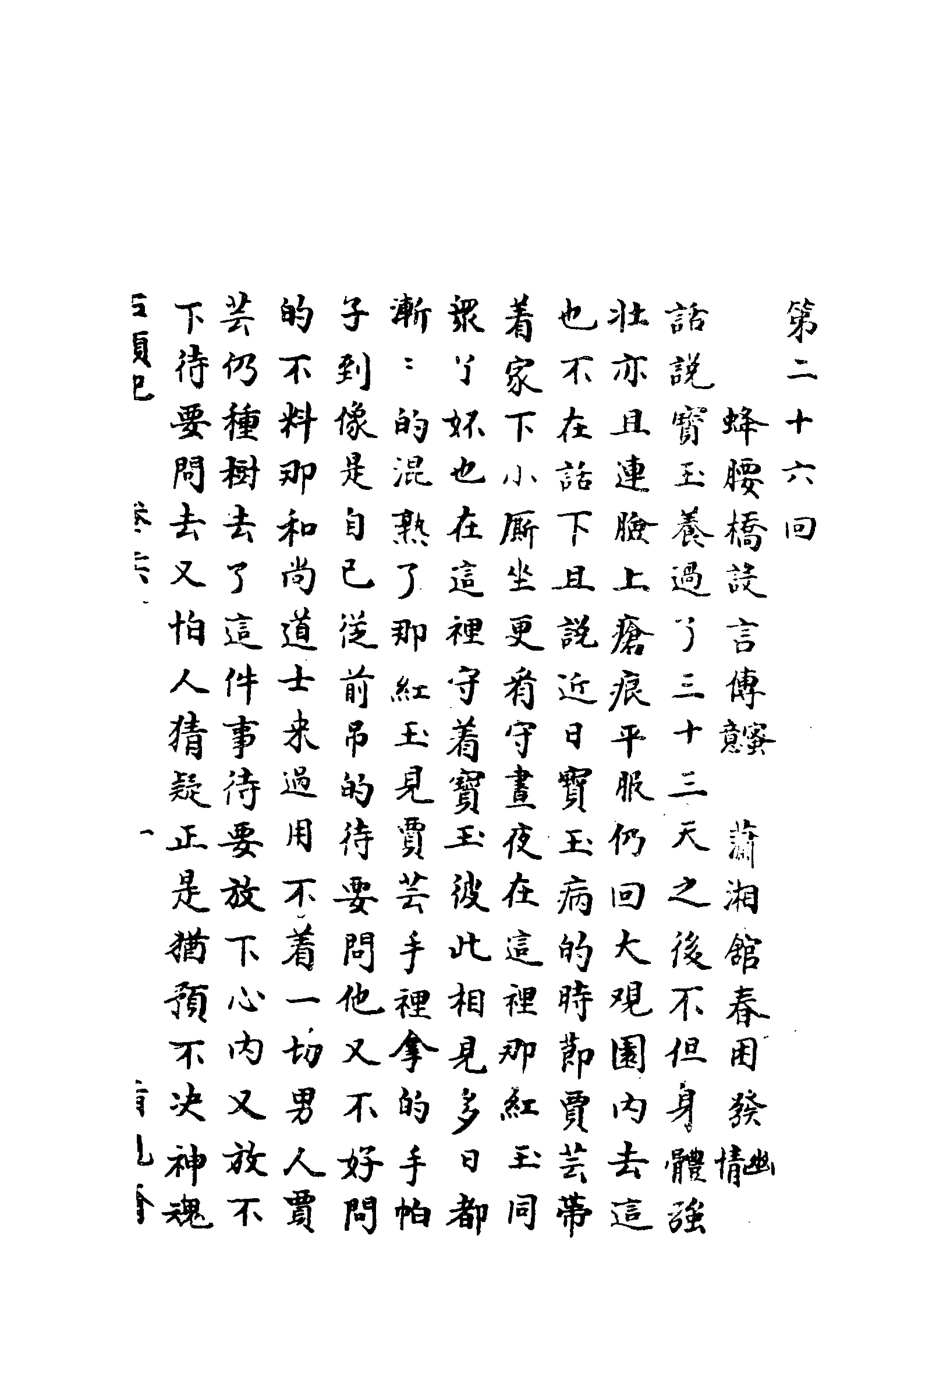 第二十六回
蜂腰橋設言傳蜜意　瀟湘舘春困發幽情
話説寳玉養過了三十三天之後不但身體強
壯亦且連臉上瘡痕平服仍回大观園内去這
也不在話下且説近日寳玉病的時節賈芸帶
着家下小厮坐更看守晝夜在這裡那紅玉同
衆丫妚也在這裡守着寳玉彼此相見多日都
漸〻的混熟了那紅玉見賈芸手裡拿的手帕
子到像是自己從前吊的待要問他又不好問
的不料那和尚道士来過用不着一切男人賈
芸仍種樹去了這件事待要放下心内又放不
下待要問去又怕人猜疑正是猶預不决神魂
石頭記　卷六　一